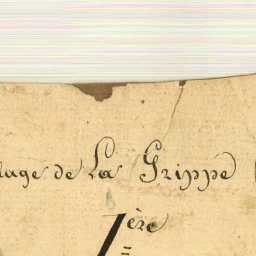 lage de La Grippe
1ère